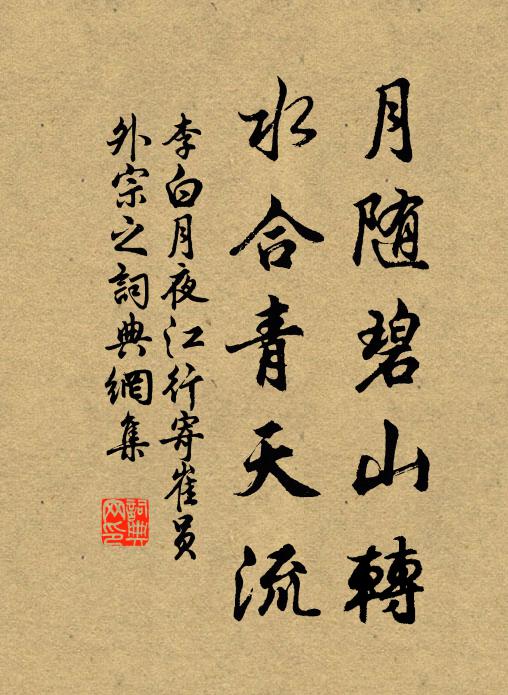 月随碧山轉
水合青天流
李白月夜江行寄崔員
外宗之詞典網集
詞典
网印